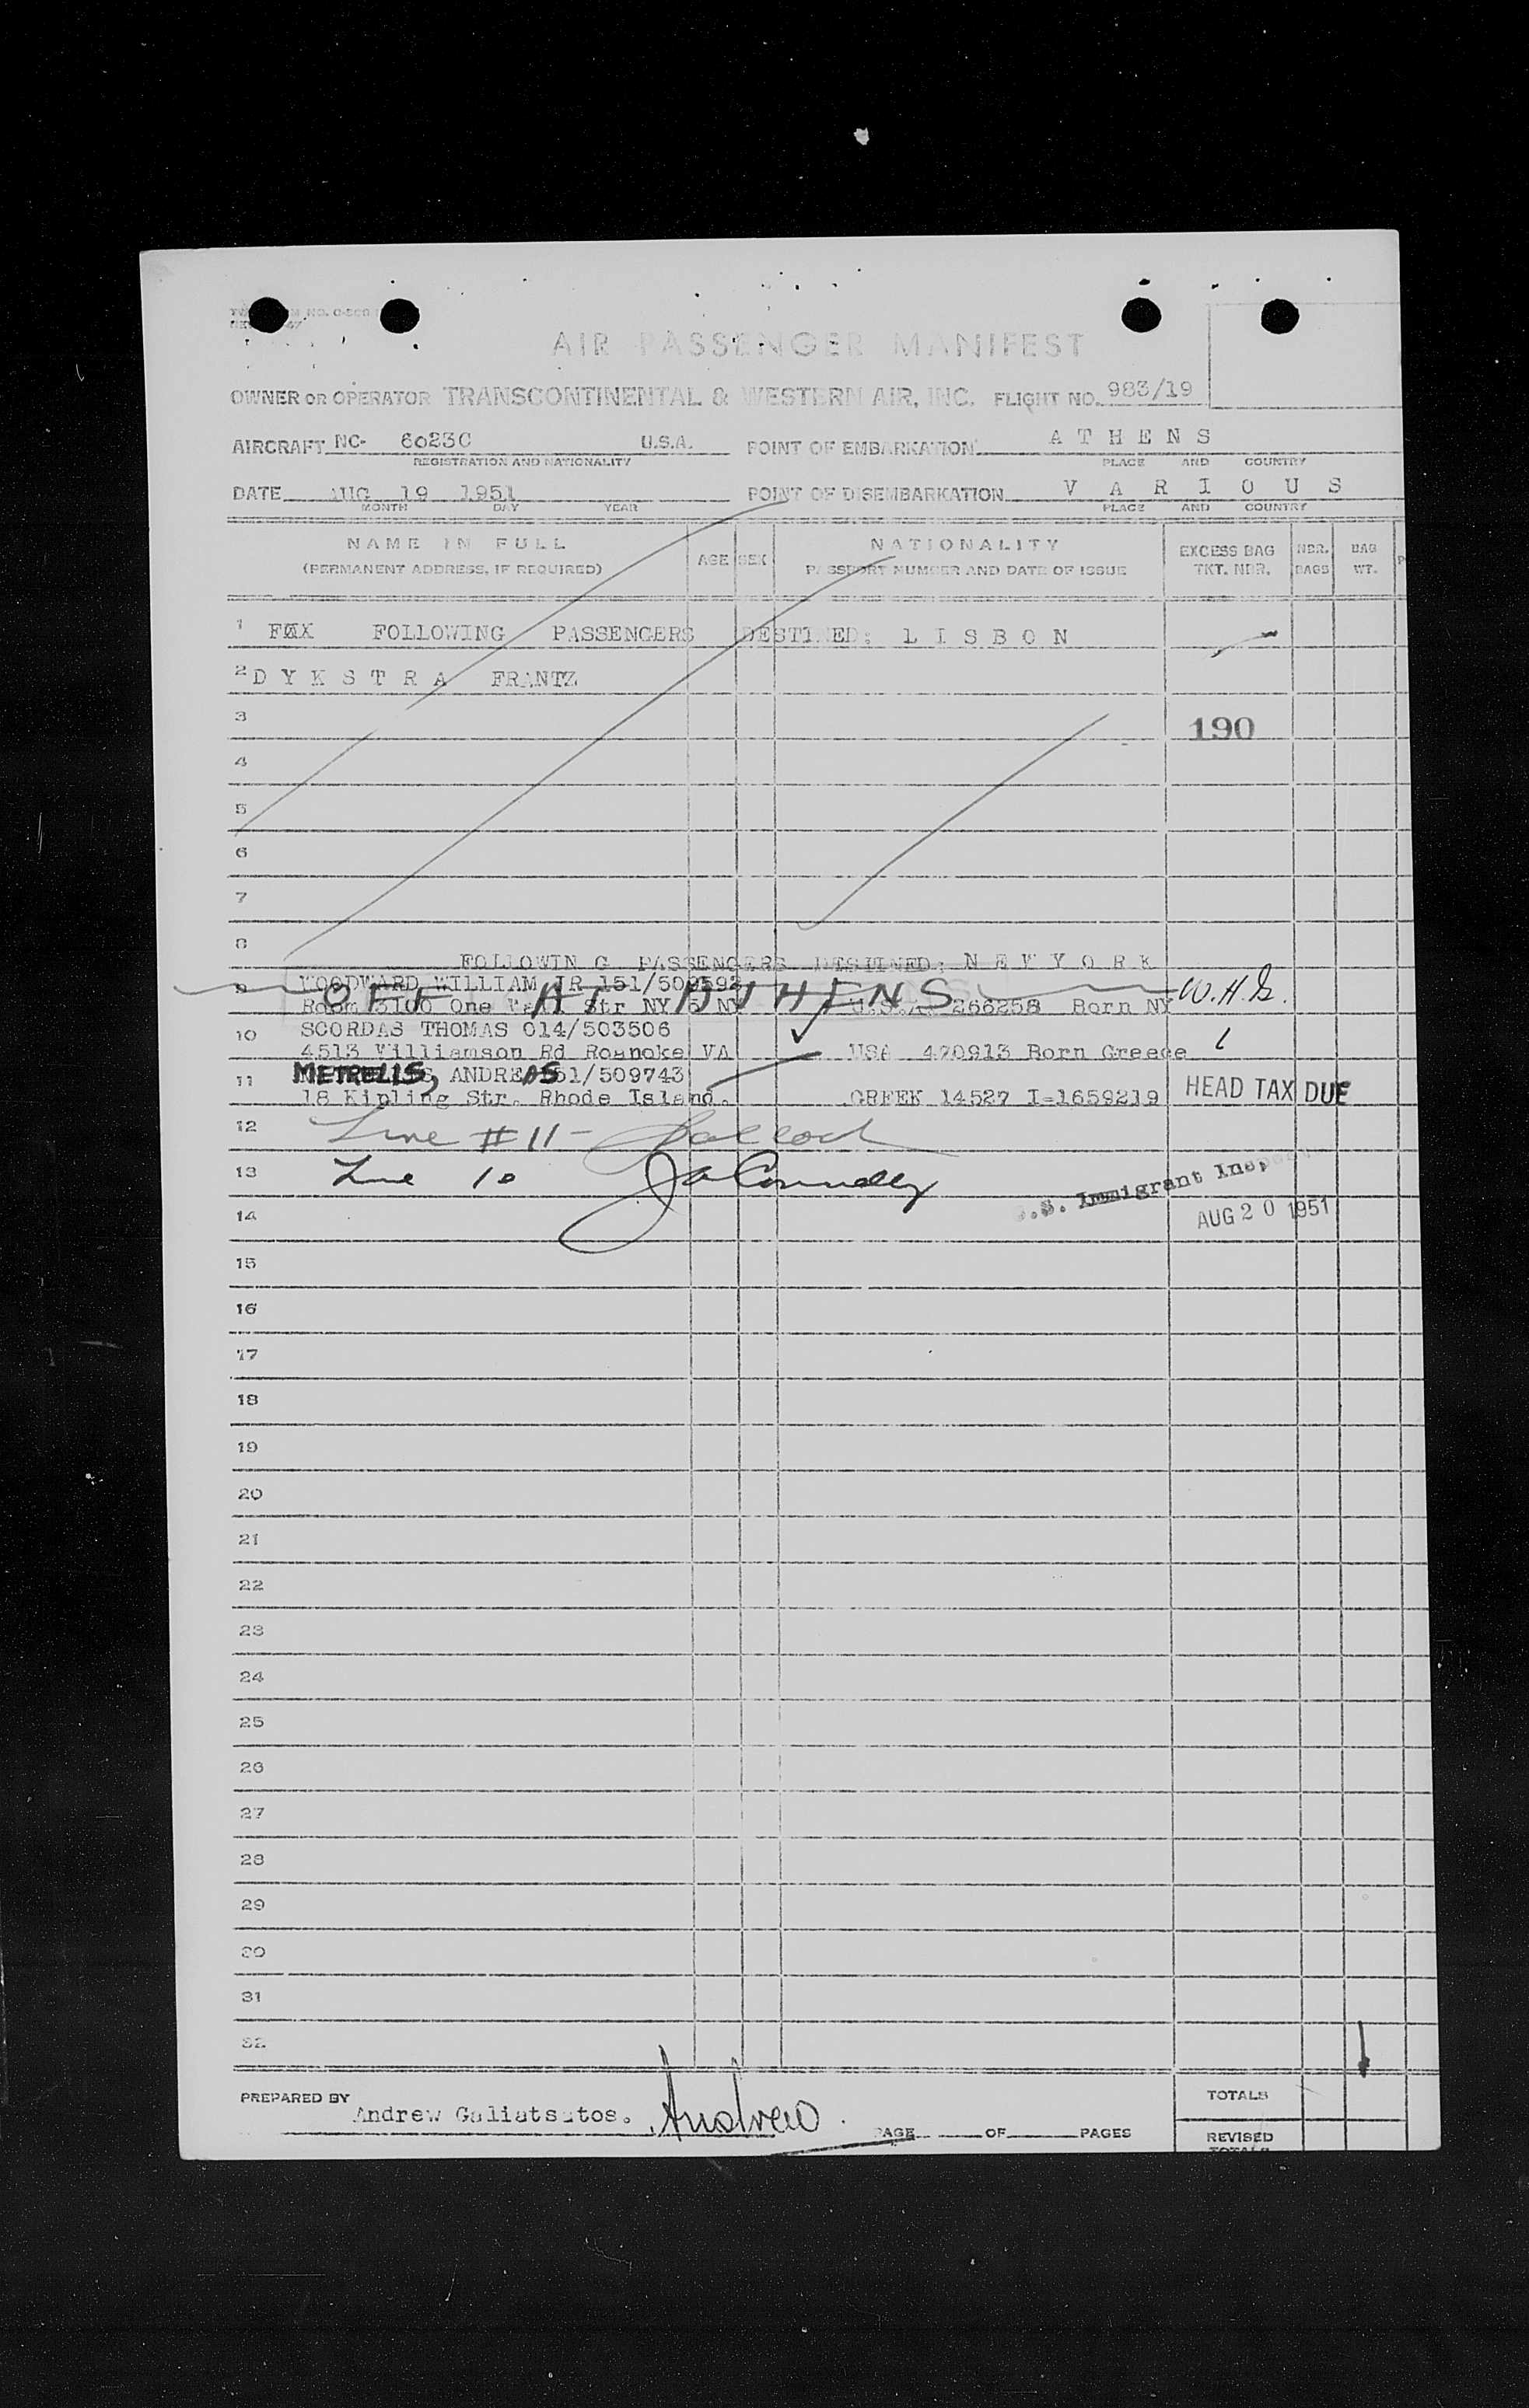 AIR PASSENGER MANIFEST
OWNER OR OPERATOR TRANSCONTINENTAL & WESTERN AIR, INC. FLIGHT NO. 983/19
AIRCRAFT NC- 6023C U.S.A. POINT OF EMBARKATION A T H E N S
REGISTRATION AND NATIONALITY PLACE AND COUNTRY
DATE AUG 19 1951 POINT OF DISEMBARKATION V A R I O U S
MONTH DAY YEAR PLACE AND COUNTRY
NAME IN FULL AGE SEX NATIONALITY EXCESS BAG NBR. BAG
(PERMANENT ADDRESS, IF REQUIRED) PASSPORT NUMBER AND DATE OF ISSUE TKT. NBR. BAGS WT.
1 FOLLOWING PASSENGERS DESTINED: L I S B O N
2 D Y K S T R A FRANTZ
3 190
4
5
6
7
8 FOLLOWIN G PASSENGERS DESTINED: N E W Y O R K
9 WOODWARD WILLIAM JR 151/509592
OFF AT ATHENS W.H.
Room 3100 One Str NY 5 NY U.S.A. 266258 Born NY
10 SCORDAS THOMAS 014/503506
4513 Williamson Rd Roanoke VA USA 470913 Born Greece
11 METRELIS, ANDREAS 51/509743
18 Kipling Str. Rhode Island. GREEK 14527 I-1659219 HEAD TAX DUE
12 Line # 11 -
13 Line 10 J A Connolly
.S. Immigrant Insp
14 AUG 20 1951
15
16
17
18
19
20
21
22
23
24
25
26
27
28
29
30
31
32
PREPARED BY Andrew Galiatsatos. Andrew PAGE OF PAGES TOTALS
REVISED
TOTALS